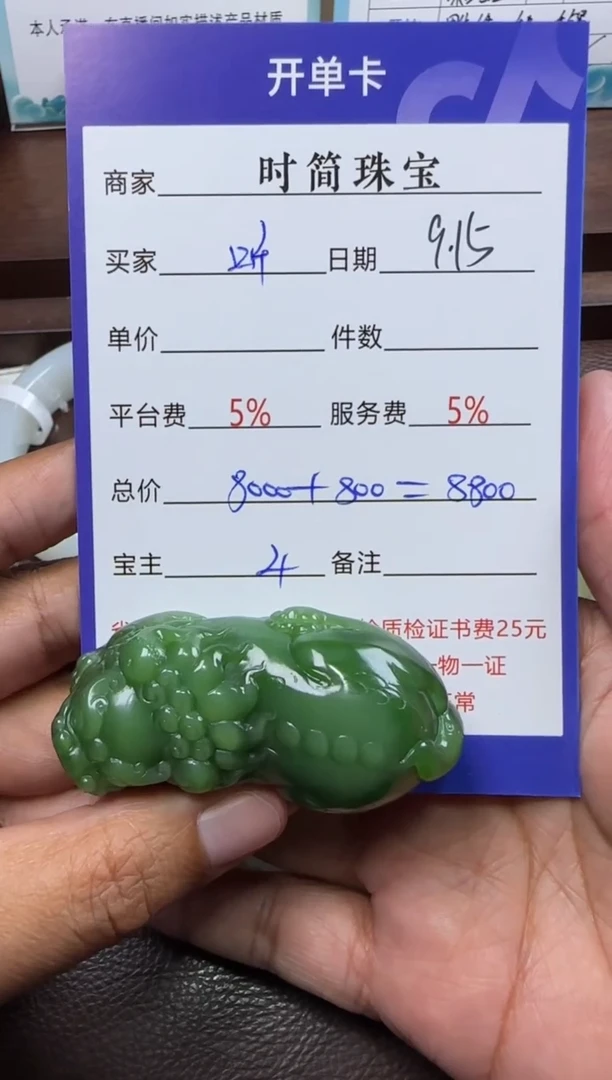 本人承诺，在直播间如实描述产品材质
开单卡
商家 时简珠宝
买家 日期 9.15
单价 件数
平台费 5% 服务费 5%
总价 8000+800=8800
宝主 4 备注
质检证书费25元
一物一证
常